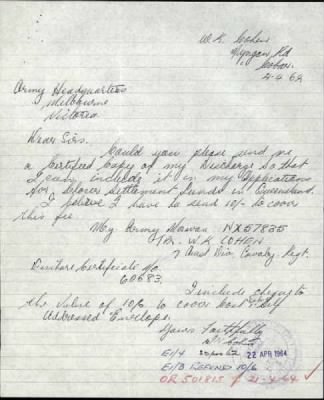 W.K. Cohen
Nyngan Rd
Cobar.
2-4-64
Army Headquarters
Melbourne
Victoria
Dear Sirs.
Could you please send me
a Certified Copy of my Discharge So that
I can include it in my applications
for Soldier Settlement Lands in Queensland.
I believe I have to send 10/- to cover
this fee.
My Army No was NX57835
Tpr. W K COHEN
7 Aust Div Cavalry Regt.
Discharge Certificate No.
60683.
I include cheque to
the value of 10/6 to cover Cost & Self
Addressed Envelope.
Yours Faithfully
W K Cohen
22 APR 1964
E1/3 REFUND 10/6
OR 501815 21-4-64